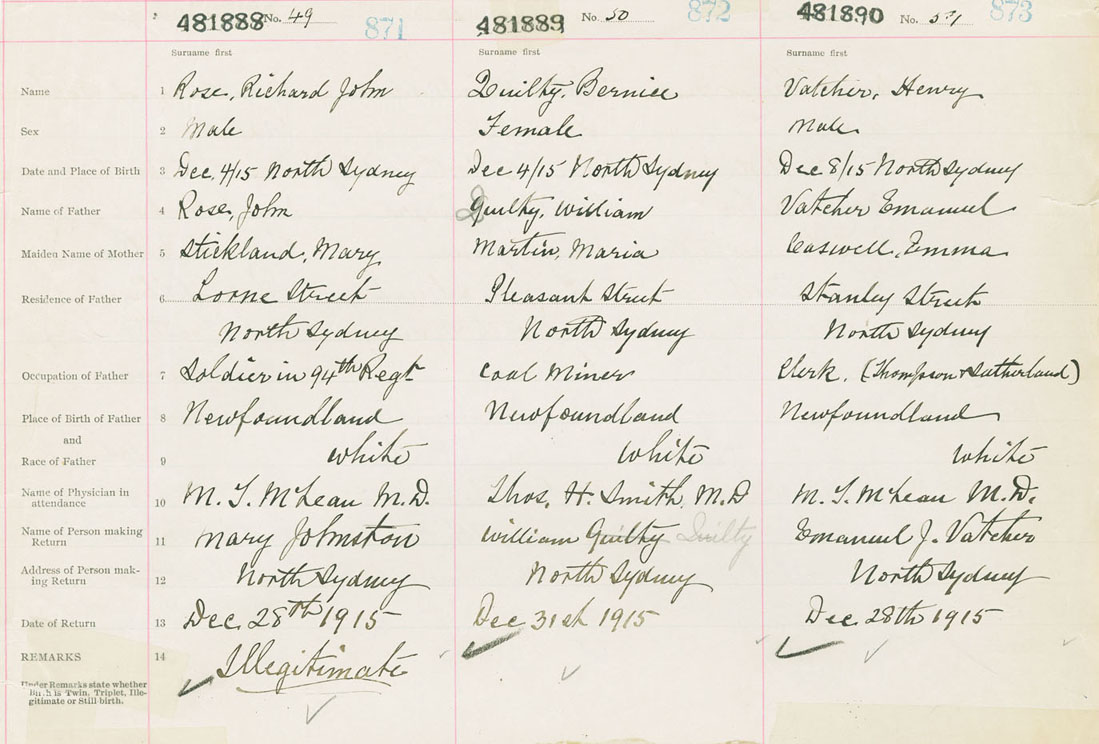 481888 No. 49 871 481889 No. 50 872 481890 No. 51 873
Surname first Surname first Surname first
Name 1 Rose, Richard John Quilty, Bernice Vatcher, Henry
Sex 2 Male Female Male
Date and Place of Birth 3 Dec. 4/15 North Sydney Dec 4/15 North Sydney Dec 8/15 North Sydney
Name of Father 4 Rose, John Quilty, William Vatcher Emanuel
Maiden Name of Mother 5 Stickland, Mary Martin, Maria Caswell, Emma
Residence of Father 6 Lorne Street Pleasant Street Stanley Street
North Sydney North Sydney North Sydney
Occupation of Father 7 Soldier in 94th Regt Coal Miner Clerk. (Thompson & Sutherland)
Place of Birth of Father 8 Newfoundland Newfoundland Newfoundland
and
Race of Father 9 white white white
Name of Physician in
attendance 10 M. T. McLean M.D. Thos. H. Smith, M.D M. T. McLean M.D.
Name of Person making
Return 11 Mary Johnston William Guilty Quilty Emanuel J. Vatcher
Address of Person mak-
ing Return 12 North Sydney North Sydney North Sydney
Date of Return 13 Dec. 28th 1915 Dec 31st 1915 Dec. 28th 1915
REMARKS 14 Illegitimate
Under Remarks state whether
Birth is Twin, Triplet, Ille-
gitimate or Still-birth.